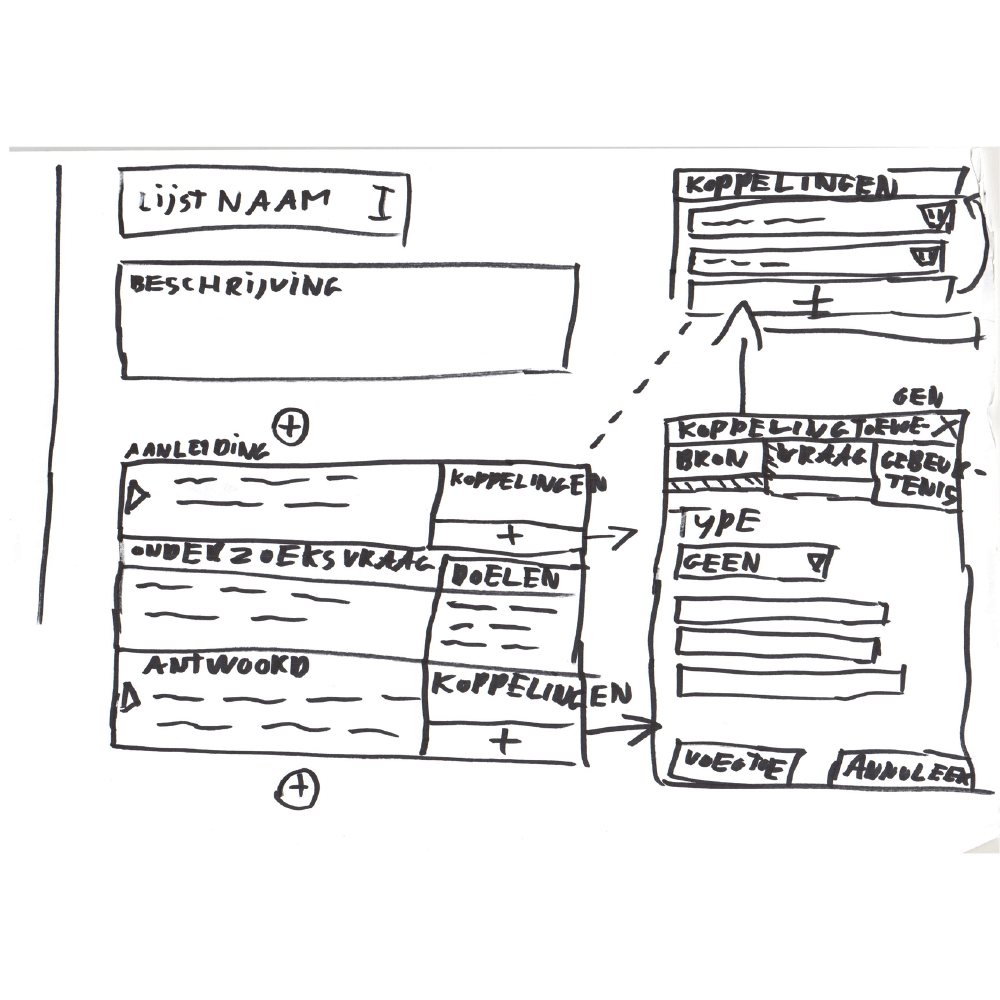 Lijst NAAM
BESCHRIJVING
AANLEIDING
KOPPELINGEN
+
ONDERZOEKSVRAAG
DOELEN
ANTWOORD
KOPPELINGEN
+
+
+
KOPPELINGEN
+
GEN
KOPPELING TOEWE- X
BRON
VRAAG
GEBEUR-
TENIS
TYPE
GEEN
VOEG TOE
ANNULEER